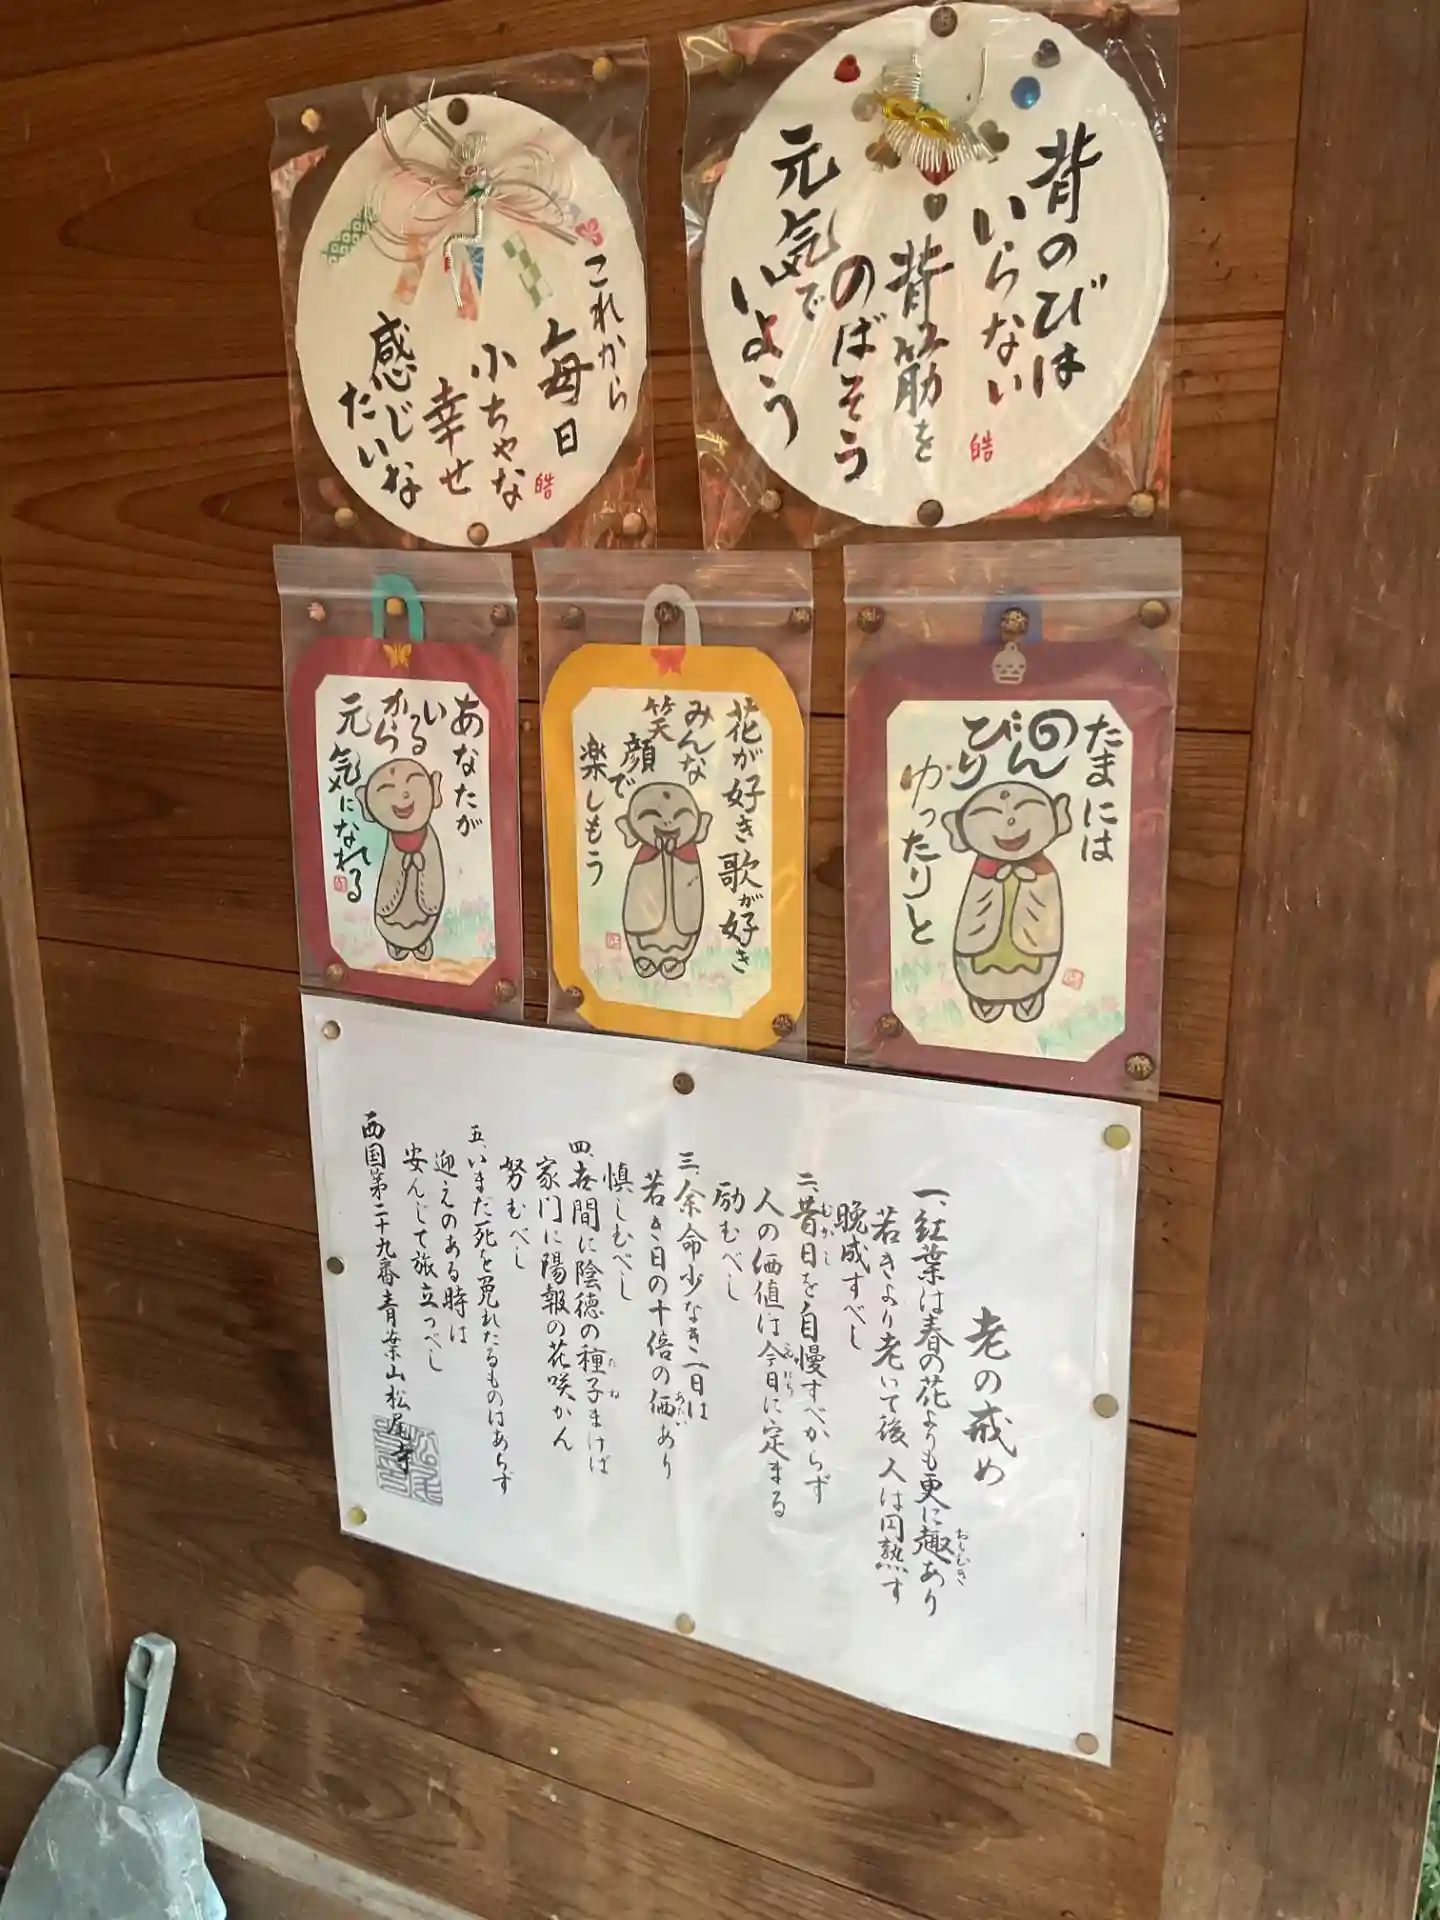 これから
毎日
小ちゃな
幸せ
感じ
たいな
皓
背のびは
いらない
背筋を
のばそう
元気で
いよう
皓
あなたが
いるから
元気になれる
花が好き歌が好き
みんな
笑顔で
楽しもう
たまには
のんびり
ゆったりと
老の戒め
一、紅葉は春の花よりも更に趣あり
おもむき
若きより老いて後人は円熟す
晩成すべし
二、昔日を自慢すべからず
むかし
人の価値は今日に定まる
こんにち
励むべし
三、余命少なき一日は
若き日の十倍の価あり
あたい
慎しむべし
四、世間に陰徳の種子まけば
たね
家門に陽報の花咲かん
努むべし
五、いまだ死を免れたるものはあらず
迎えのある時は
安んじて旅立つべし
西国第二十九番青葉山松尾寺